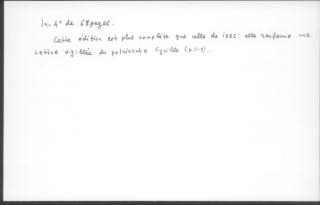 In-4° de 68 pages.
Cette édition est plus complète que celle de 1822: elle renferme une
lettre sigillée du patriarche Cyrille (p.